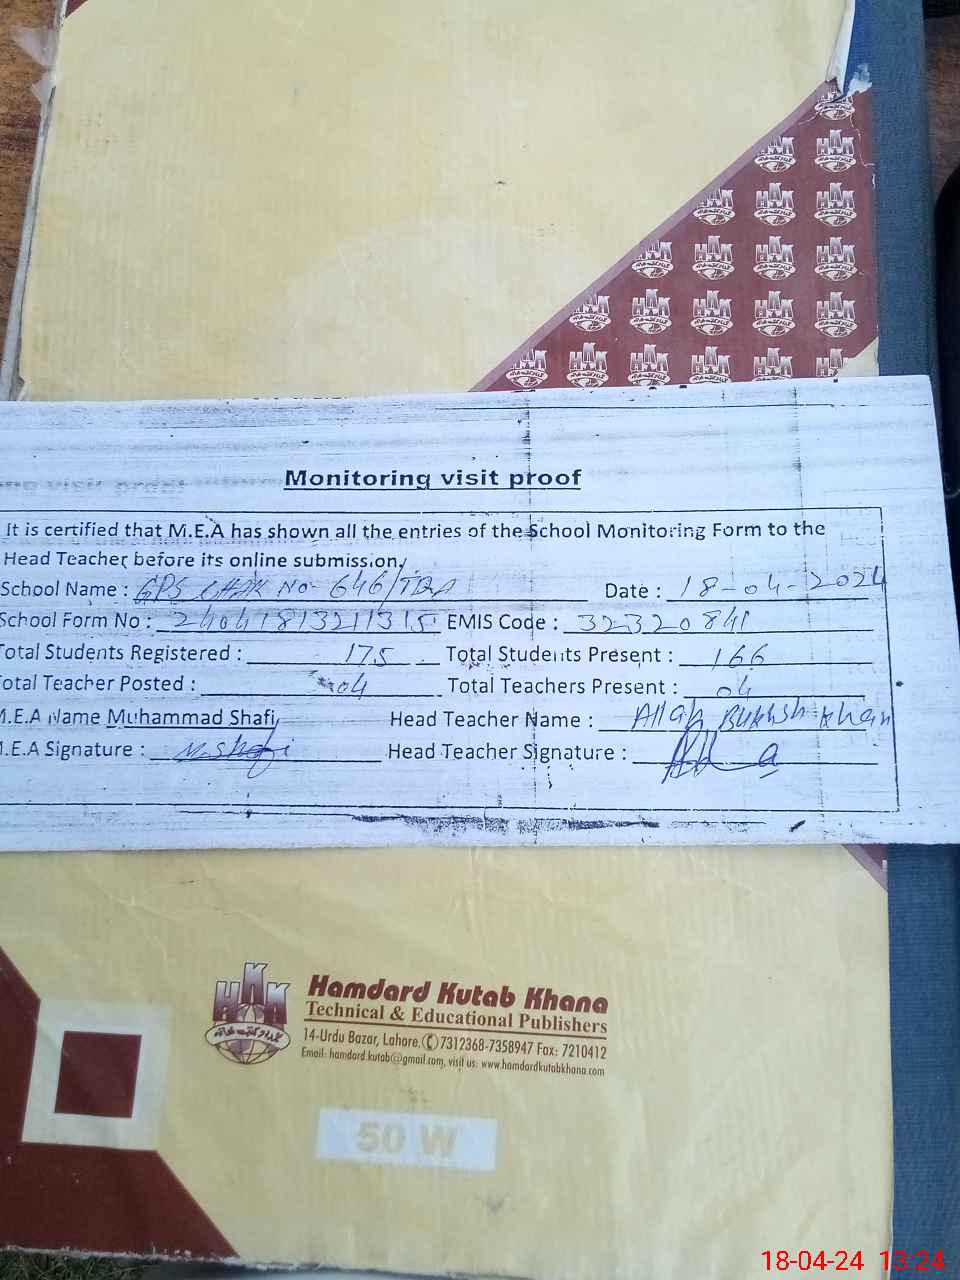 Monitoring visit proof
It is certified that M.E.A has shown all the entries of the School Monitoring Form to the
Head Teacher before its online submission.
School Name : GPS CHAK No- 646/TDA Date : 18-04-2024
School Form No : EMIS Code : 32320841
Total Students Registered : 175 Total Students Present : 166
Total Teacher Posted : 04 Total Teachers Present : 04
M.E.A Name Muhammad Shafi Head Teacher Name : Allah Bukhsh Khan
M.E.A Signature : M.Shafi Head Teacher Signature :
HAK
Hamdard Kutab Khana
Technical & Educational Publishers
14-Urdu Bazar, Lahore. 7312368-7358947 Fax: 7210412
Email: hamdard.kutab@gmail.com, visit us: www.hamdardkutabkhana.com
50 W
18-04-24 13:24